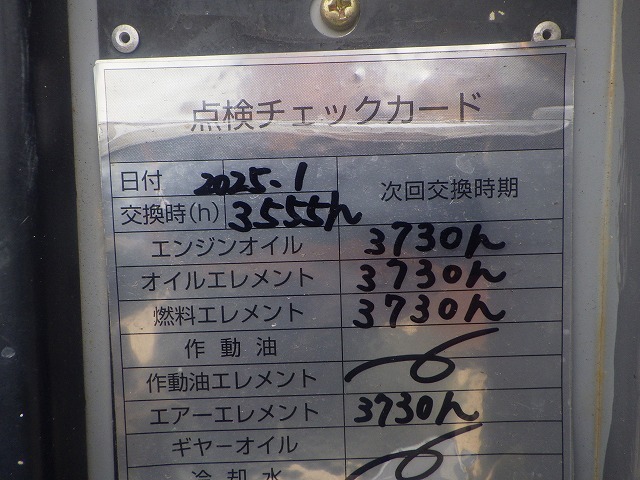 点検チェックカード
日付 2025.1 次回交換時期
交換時(h) 3555h
エンジンオイル 3730h
オイルエレメント 3730h
燃料エレメント 3730h
作動油
作動油エレメント
エアーエレメント 3730h
ギヤーオイル
冷却水